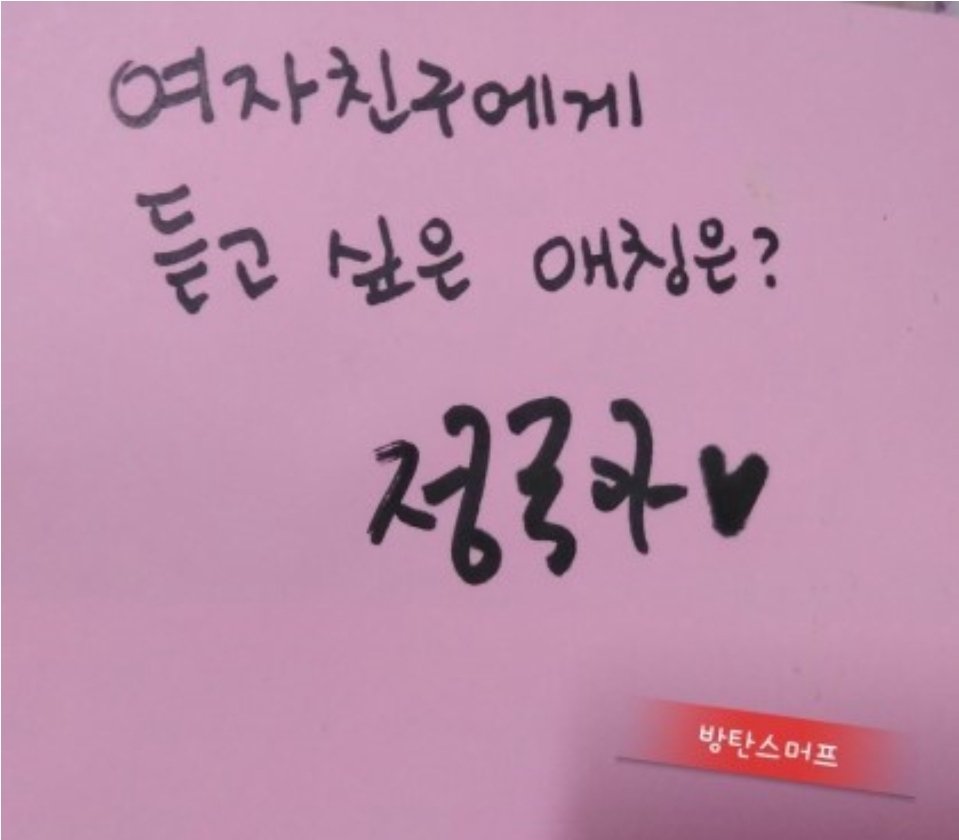 여자친구에게
듣고 싶은 애칭은?
정국아♥
방탄스머프